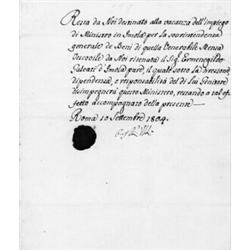 Resta da Noi destinato alla vacanza dell'impiego
di Ministro in Imola per la sovrintendenza
generale de Beni di quella Venerabile Mensa
Vescovile da Noi ritenuta il Sig. Ermenegildo
Galeati d'Imola, il quale sotto la direzione,
dipendenza, e responsabilità del di Lui Genitore
disimpegnerà questo Ministero, restando a tal ef-
fetto accompagnato della presente
Roma 10 Settembre 1804.